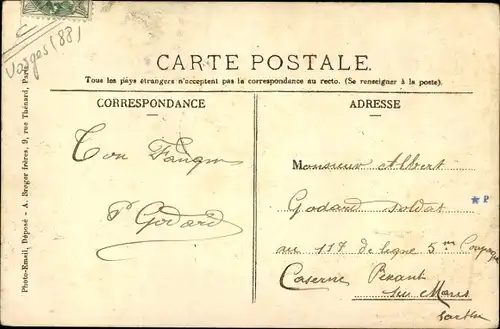 Vosges (88)
CARTE POSTALE.
Tous les pays étrangers n'acceptent pas la correspondance au recto. (Se renseigner à la poste).
CORRESPONDANCE
ADRESSE
Photo-Email, Déposé - A. Breger frères, 9, rue Thénard, Paris
Ton
P Godard
Monsieur Albert
Godard soldat
au 117 de ligne 5me
Caserne
Mans
Sarthe
* P